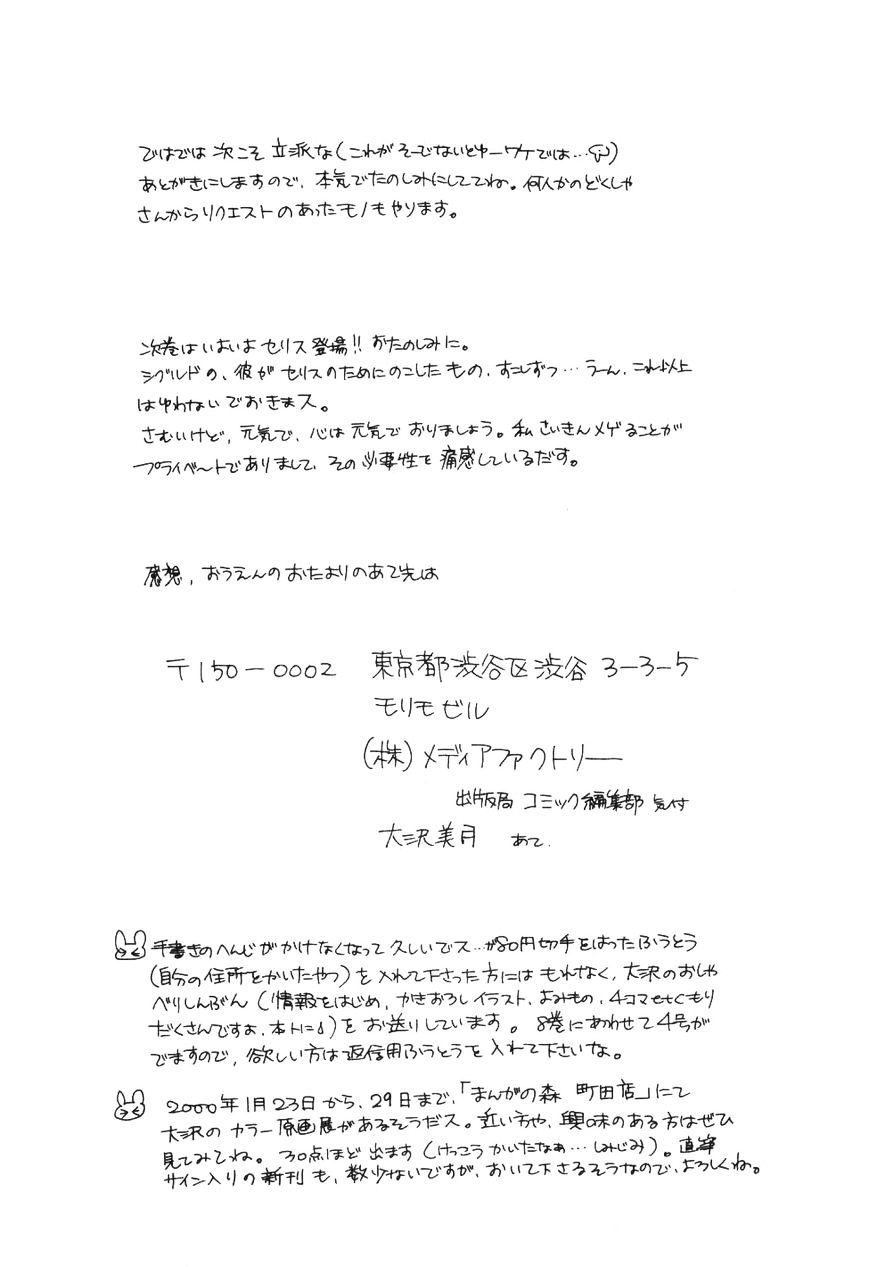 ではでは 次こそ 立派な(これが そーでないとゆーワケでは…)
あとがきにしますので、本気でたのしみにしててね。何人かのどくしゃ
さんからリクエストのあったモノもやります。
次巻はいよいよ セリス登場!! おたのしみに。
シグルドの、彼が セリスのためにのこしたもの、すこしずつ…うーん、これ以上
はゆわないでおきまス。
さむいけど、元気で、心は元気で おりましょう。私さいきんメゲることが
プライベートでありまして、その必要性を痛感しているだす。
感想、おうえんのおたよりのあて先は
〒150-0002 東京都渋谷区渋谷 3-3-5
モリモビル
(株)メディアファクトリー
出版局 コミック編集部 気付
大沢美月 あて.
手書きのへんじがかけなくなって久しいでス…が80円切手をはったふうとう
(自分の住所をかいたやつ)を入れて下さった方には もれなく、大沢のおしゃ
べりしんぶん(情報をはじめ、かきおろしイラスト、よみもの、4コマetcもり
だくさんですよ、本トに)をお送りしています。8巻にあわせて4号が
でますので、欲しい方は返信用ふうとうを入れて下さいな。
2000年1月23日から、29日まで、「まんがの森 町田店」にて
大沢の カラー原画展があるそうだス。近い方や、興味のある方はぜひ
見てみてね。30点ほど出ます(けっこうかいたなぁ…しみじみ)。直筆
サイン入りの新刊も、数少ないですが、おいて下さるそうなので、よろしくね。